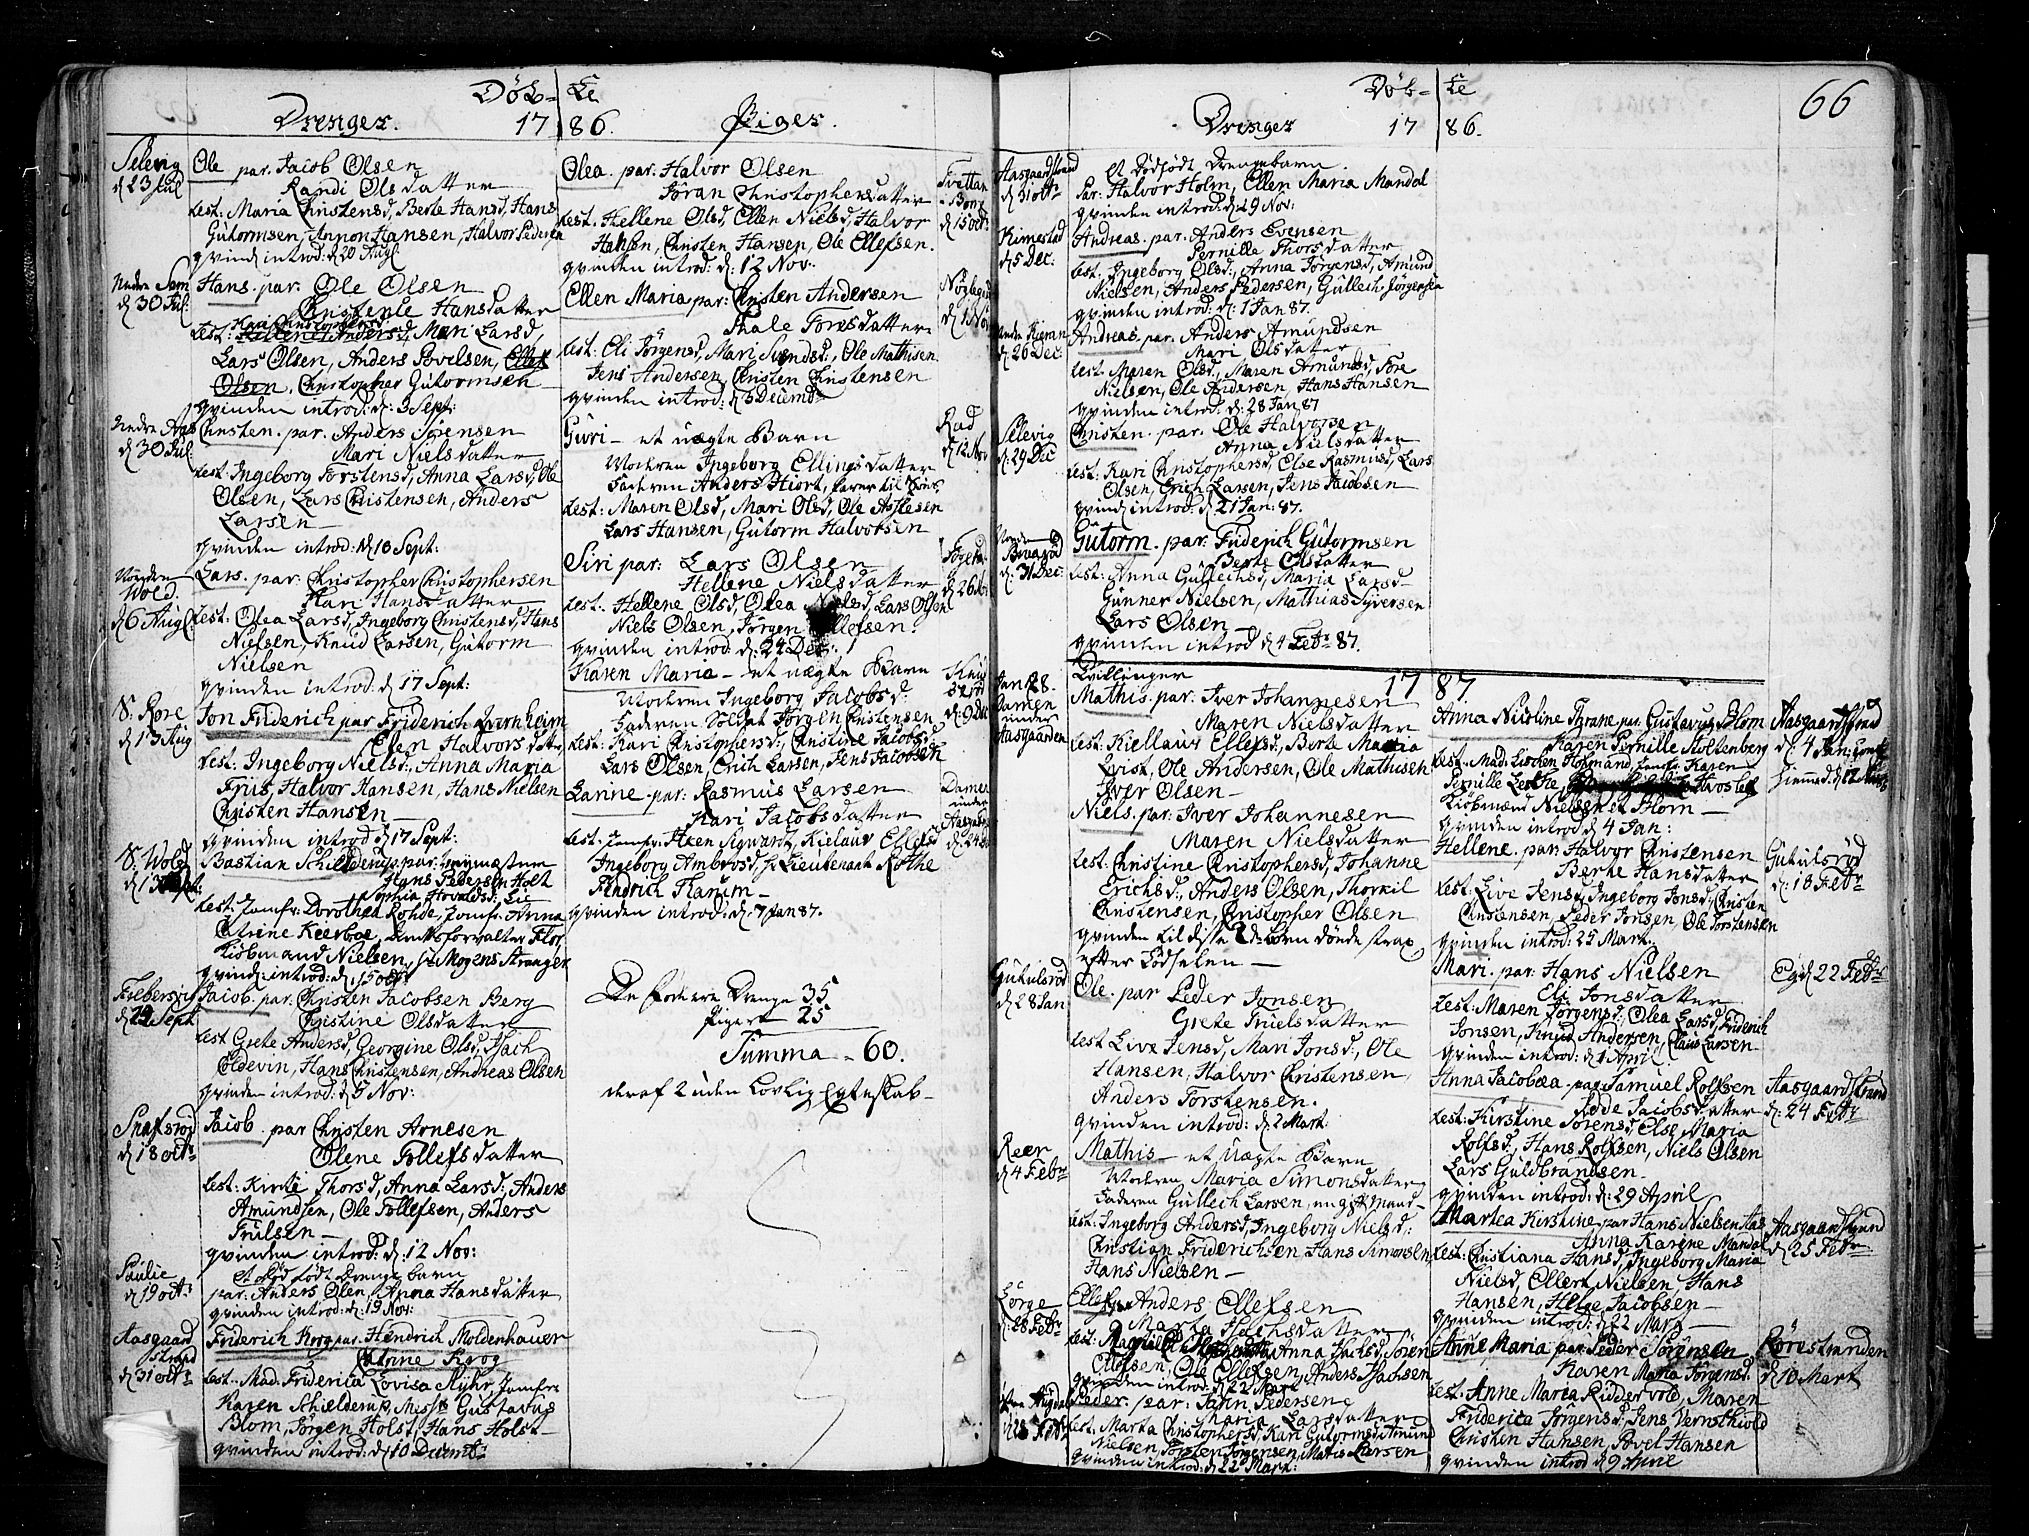 Døb-
te
Drenger.
17
86.
Piger.
Selevig
d 23 Jul
Ole par. Jacob Olsen
Randi Olsdatter
test: Maria Christensd, Berte Hansd, Hans
Gutormsen, Anon Hansen, Halvor Pedersen
qvind introd: d 20 Aug
Nedre Sem
d 30 Jul:
Hans. par: Ole Olsen
Christenle Hansdatter
Kari Christophersd
test: Hellene Andersd, Mari Larsd,
Lars Olsen, Anders Povelsen, Ellef
Olsen. Christopher Gutormsen
qvinden introd: d: 3 Sept:
Nedre Aas
d 30 Jul:
Christen. par: Anders Sørensen
Mari Nielsdatter
test: Ingeborg Torstensd, Anna Larsd, Ole
Olsen, Lars Christensen, Anders
Larsen
qvinden introd: d 10 Sept:
Norden
Wold.
d 6 Aug:
Lars. par: Christopher Christophersen
Kari Hansdatter
test: Olea Larsd, Ingeborg Christensd, Hans
Nielsen, Knud Larsen, Gutorm
Nielsen
qvinden introd: d 17 Sept:
S: Rore
d 13 Aug
Jon Friderich par Friderich Qvernheim
Elen Halvorsdatter
test: Ingeborg Nielsd:, Anna Maria
Friis, Halvor Hansen, Hans Nielsen
Christen Hansen
qvinden introd d 17 Sept:
S: Wold
d 13 Sept:
Bastian Schieldrup, par:
Hans Pedersen Holt
Sophia Hovaldsd: Lie
test: Jomfr: Dorothea Rohde, Jomfr: Anna
Catrine Keerboe, Flor,
Kiøbmand Nielsen, Sr Mogens Stranger
qvind: introd: d 15 octr
d 24 Sept
Jacob. par. Christen Jacobsen Berg
Christine Olsdatter
test Grete Andersd, Georgine Olsd, Isach
Coldevin, Hans Christensen, Andreas Olsen
qvinden introd: d 5 Nov:
Snafsrød
d 18 octr
Jacob. par Christen Arnesen
Olene Tollefsdatter
test: Kirsti Thorsd, Anna Larsd:, Anders
Amundsen, Ole Tollefsen, Anders
Trulsen
qvinden introd: d: 12 Nov:
Paulie
d 19 oct:
et død født Drenge barn
par: Anders Olen, Anna Hansdatter
qvinden introd: d: 19 Nov:
Aasgaard
strand
d 31 octr
Friderich Krog par. Hendrich Moldenhauer
Catrine Krog
test. Mad. Friderica Lovisa Myhr, Jomfr.
Karen Schielderup, Messr Gustavus
Blom, Jørgen Holst, Hans Holst
qvinden introd: d 10 Decembr
Olea. par: Halvor Olsen
Jøran Christophersdatter
test: Hellene Olsd, Ellen Nielsd, Halvor
Hansen, Christen Hansen, Ole Ellefsen.
qvinden introd: d: 12 Nov:
d 15 oct:
Ellen Maria par: Christen Andersen
Thale Toresdatter
test: Eli Jørgensd, Mari Svendsd:, Ole Mathisen
Jens Andersen, Christen Christensen
qvinden introd: d 3 Decembr
d 1 Nov
Guri - et uægte Barn
Moderen Ingeborg Ellingsdatter
Faderen Anders Hiort,
test: Maren Olsd, Mari Olsd, Ole Aslesen
Lars Hansen, Gutorm Halvorsen
Rød
d 12 Nov
Siri par: Lars Olsen
Hellene Nielsdatter
test. Hellene Olsd, Olea Nielsd, Lars Olsen
Niels Olsen, Jørgen Ellefsen.
qvinden introd: d: 24 Dec:
Karen Maria - et uægte Barn
Moderen Ingeborg Jacobsd:
Faderen Soldat Jørgen Christensen
test: Kari Christophersd:, Christine Jacobsd:
Lars Olsen, Erich Larsen, Jens Jacobsen
Larine par: Rasmus Larsen
Kari Jacobsdatter
test: Jomfr: Aken Sigwardt, Kielaus Ellefs
Ingeborg Ambrosd, Sr Lieutenant Rothe
Hendrich Thanum
qvinden introd: d: 7 Jan 87.
Damen
under
De fødere Drenge 35
Piger 25
Summa - 60.
deraf 2 uden Lovlig Egteskab-
Døb-
te
66
Drenger
17
86.
Aasgaardstrand
d 31 octr
et Dødfødt Drengebarn
Par: Halvor Holm, Ellen Maria Mandal
qvinden introd: d 29 Nov:
Kimestad
d 5 Dec:
Andreas. par: Anders Evensen
Pernille Thorsdatter
test. Ingeborg Olsd:, Anna Jørgensd, Amund
Nielsen, Anders Pedersen, Gullech Jørgensen
qvinden introd: d: 1 Jan 87.
d: 26 Dec:
Andreas. par. Anders Amundsen
Mari Olsdatter
test Maren Olsd, Maren Amundsd, Tore
Nielsen, Ole Andersen, Hans Hansen
qvinden introd: d: 28 Jan 87
Selevig
d: 29 Dec
Christen. par: Ole Halvorsen
Anna Nielsdatter
test: Kari Christophersd, Else Rasmusd, Lars
Olsen, Erich Larsen, Jens Jacobsen
qvind introd: d 21 Jan: 87.
d: 31 Dec:
Gutorm. par: Friderich Gutormsen
Berte Olsdatter
test: Anna Gullechsd, Maria Larsd
Gunner Nielsen, Mathias Syversen
Lars Olsen
qvinden introd d 4 Febr 87.
17
87
Jan 28.
Damen
under
Aasgaarden
Tvillinger
Mathis. par: Iver Johannesen
Maren Nielsdatter
test: Kiellaus Ellefsd:, Berte Maria
Qvist, Ole Andersen, Ole Mathisen
Iver Olsen
Niels. par: Iver Johannesen
Maren Nielsdatter
test: Christine Christophersd, Johanne
Erichsd:, Anders Olsen, Thorkil
Christensen, Christopher Olsen
qvinden til disse 2de børn døde strax
efter Fødselen
Gutulsrød
d 28 Jan
Ole. par Peder Jonsen
Grete Truelsdatter
test Live Jensd, Mari Jonsd:, Ole
Hansen, Halvor Christensen,
Anders Torstensen.
qvinden introd: d 2 Mart:
Reer
d 4 Febr
Mathis - et Uægte Barn
Moderen Maria Simonsdatter
Faderen Gullech Larsen, en gift Mand
test: Ingeborg Andersd, Ingeborg Nielsd,:
Christian Friderichsen, Hans Simonsen,
Hans Nielsen
Sørge
d: 28 Febr
Ellef par Anders Ellefsen
Marta Isachsdatter
Anna Isachsd, Søren
Olefsen, Ole Ellefsen, Anders Isachsen
qvinden introd: d 22 Mart
Peder. par: Jann Pedersen
Maria Larsdatter
test. Marta Christophersd, Kari Gutormsd, Amund
Nielsen, Torsten Jørgensen, Matis Larsen
qvinden introd: d 22 Mart:
Anna Nicoline Thrane par. Gustavus Blom
Karen Pernille Stoltenberg
test: Mad. Lischen Hofmand, Jomfr: Karen
Pernille Lercke,
Kiøbmænd Nielsen et Horn
qvinden introd d 4 Jan:
Aasgaardstrand
d: 4 Jan:
Hellene. par: Halvor Christensen
Berthe Hansdatter
test: Live Jensd, Ingeborg Jonsd, Christen
Christensen, Peder Jonsen, Ole Torstensen
qvinden introd: 25 Mart.
Gutulsrød
d: 18 Febr
Mari. par: Hans Nielsen
Eli Jonsdatter
test: Maren Jørgensd, Olea Larsd, Friderich
Jonsen, Knud Andersen, Claus Larsen
qvinden introd: d 1 April
d 22 Febr
Anna Jacobæa par Samuel Rolfsen
Jacobsdatter
test: Kirstine Sørensd, Else Maria
Rolfsd, Hans Rolfsen, Niels Olsen
Lars Guldbrandsen
qvinden introd: d: 29 April
Aasgaardstrand
d: 24 Febr
Martea Kirstine par Hans Nielsen Aas
Anna Karine Mandal
test: Christiana Hansd, Ingeborg Maria
Nielsd, Ellert Nielsen, Hans
Hansen, Helge Jacobsen
qvinden introd: d 22 Mart
Aasgaardstrand
d 25 Febr
Anne Maria par Peder Sørensen
Karen Maria Jørgensd.
test: Anne Maria Riddervold, Maren
Friderica Jørgensd, Jens Vernschiold
Christen Hansen, Povel Hansen
qvinden introd d 9 April
Rørestranden
d 10 Mart